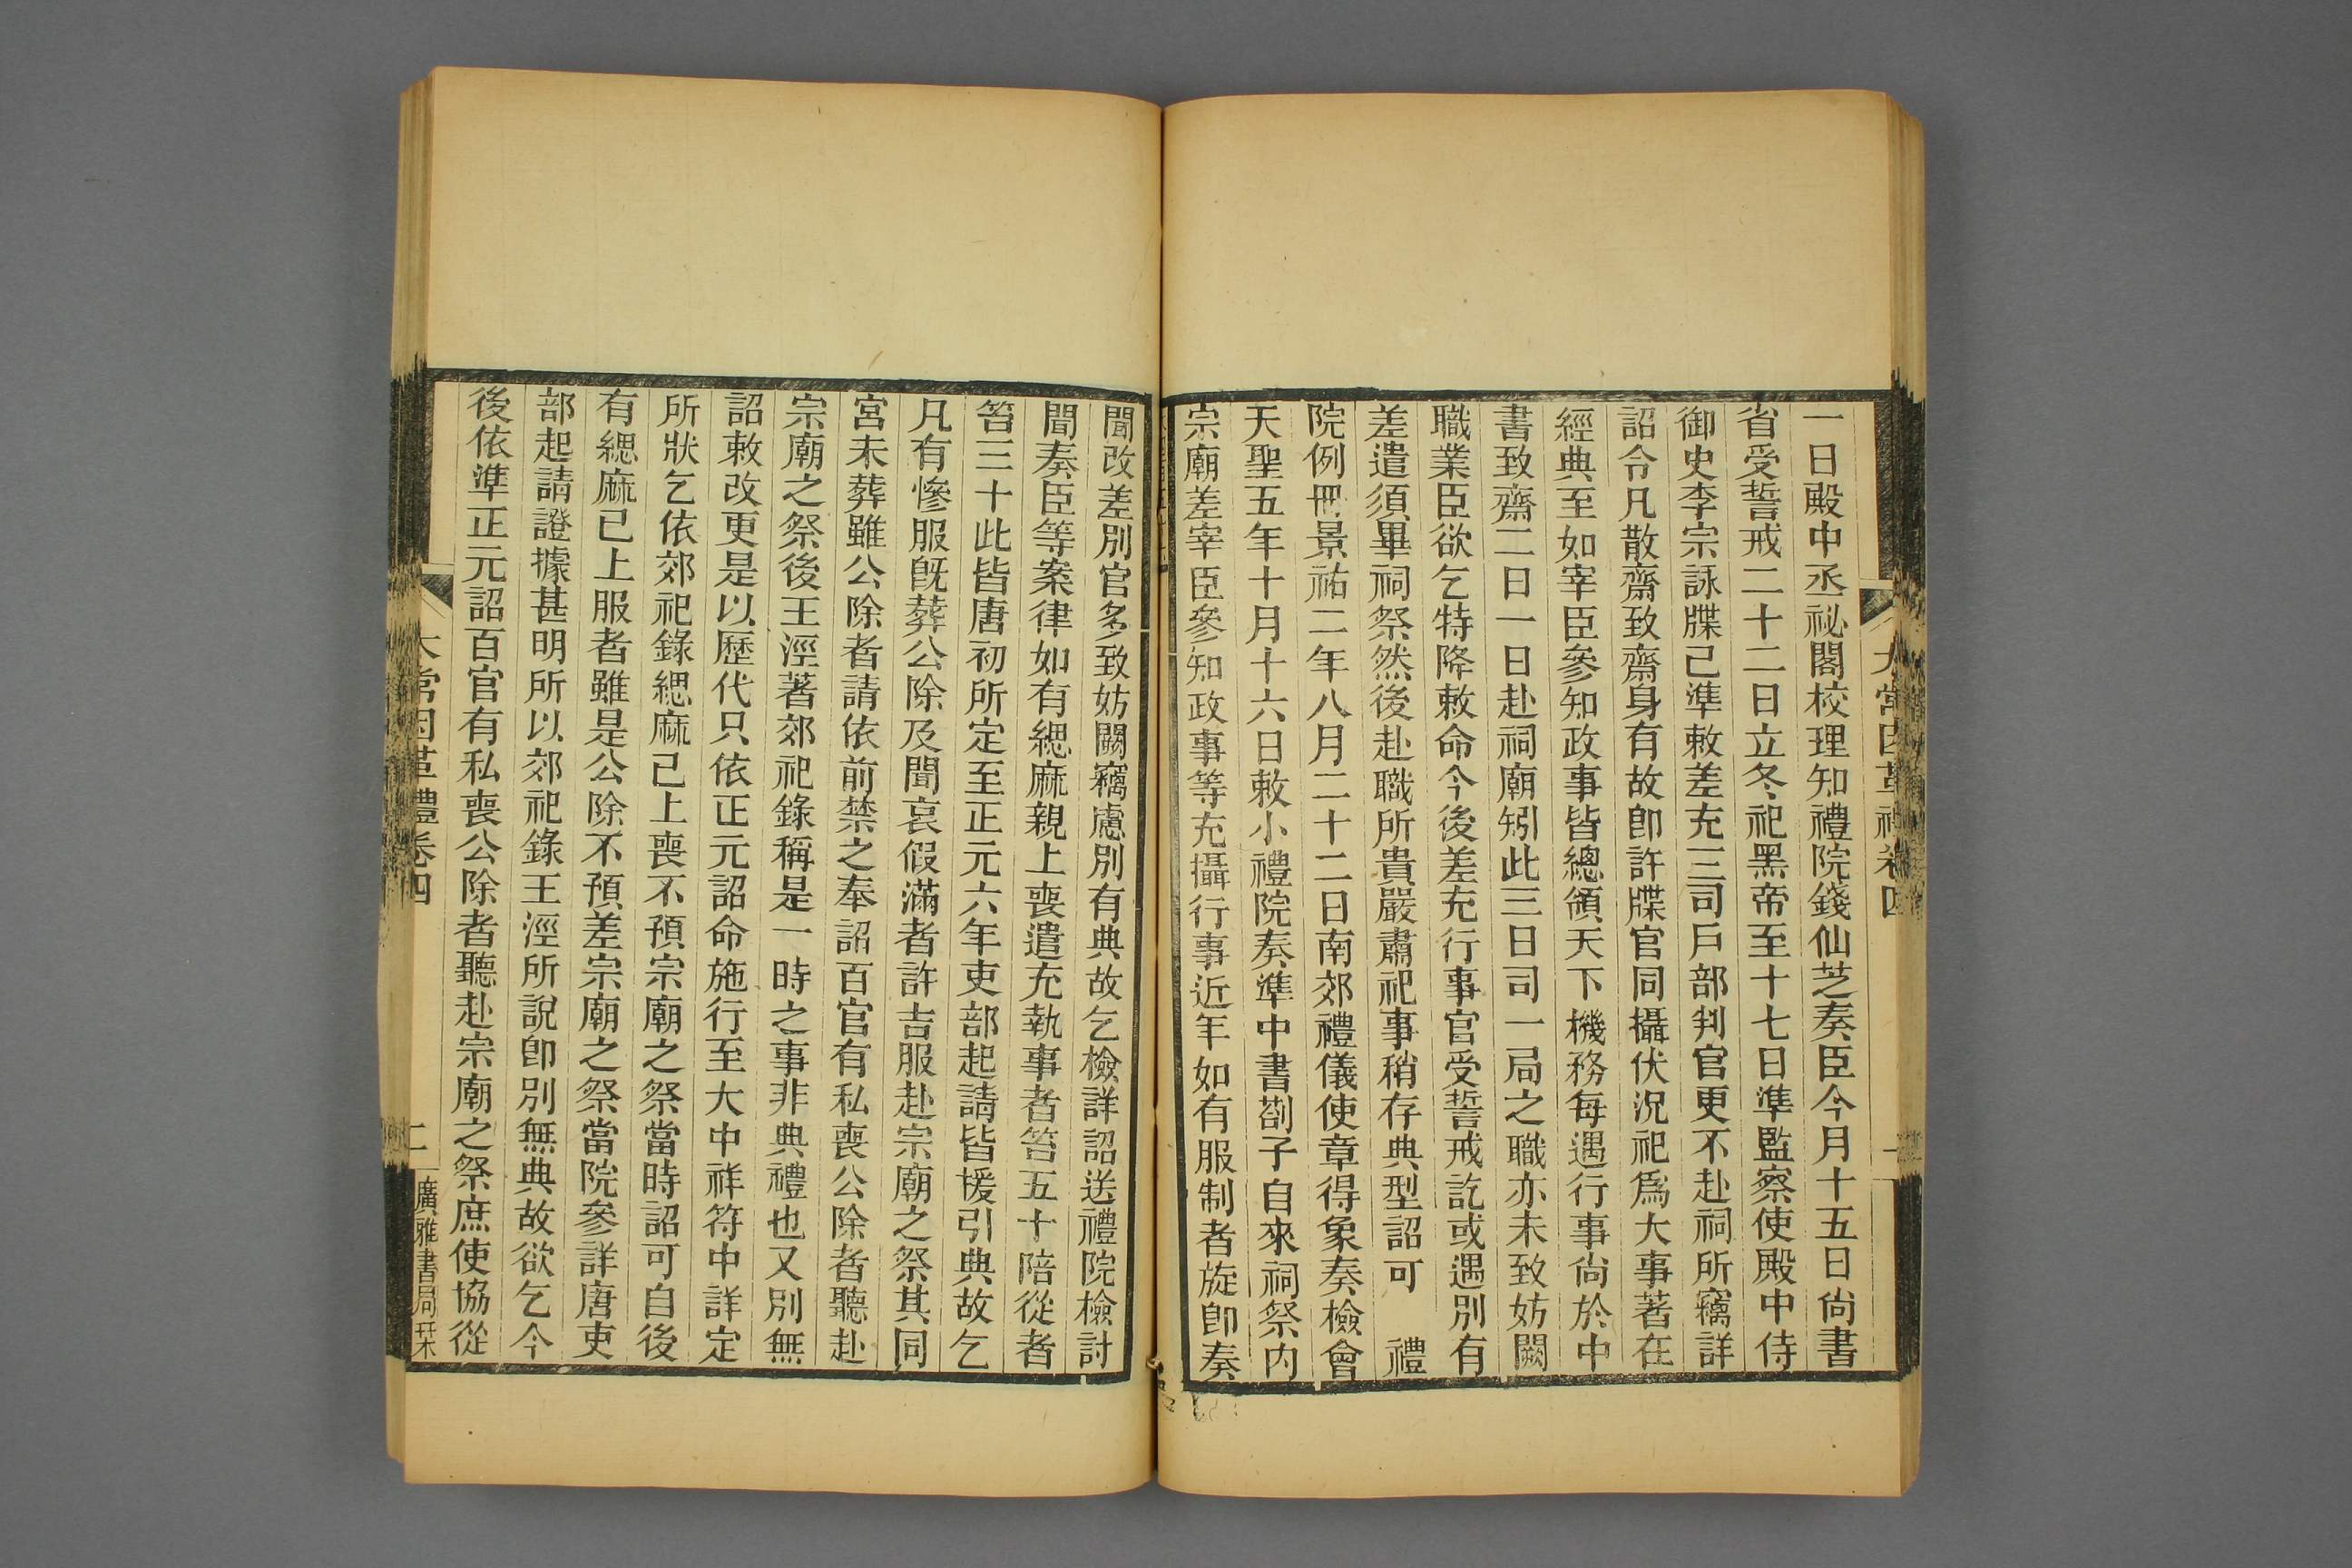 一日殿中丞祕閣校理知禮院錢仙芝奏臣今月十五日尙書
省受誓戒二十二日立冬祀黑帝至十七日準監察使殿中侍
御史李宗詠牒已準敕差充三司戶部判官更不赴祠所竊詳
詔令凡散齋致齋身有故卽許牒官同攝伏況祀爲大事著在
經典至如宰臣參知政事皆總領天下機務每遇行事尙於中
書致齋二日一日赴祠廟矧此三日司一局之職亦未致妨闕
職業臣欲乞特降敕命今後差充行事官受誓戒訖或遇別有
差遣須畢祠祭然後赴職所貴嚴肅祀事稍存典型詔可　禮
院例冊景祐二年八月二十二日南郊禮儀使章得象奏檢會
天聖五年十月十六日敕小禮院奏準中書劄子自來祠祭內
宗廟差宰臣參知政事等充攝行事近年如有服制者旋卽奏
太常因革禮卷四
一
聞改差別官多致妨闕竊慮別有典故乞檢詳詔送禮院檢討
聞奏臣等案律如有緦麻親上喪遣充執事者笞五十陪從者
笞三十此皆唐初所定至正元六年吏部起請皆援引典故乞
凡有慘服旣葬公除及聞哀假滿者許吉服赴宗廟之祭其同
宮未葬雖公除者請依前禁之奉詔百官有私喪公除者聽赴
宗廟之祭後王涇著郊祀錄稱是一時之事非典禮也又別無
詔敕改更是以歷代只依正元詔命施行至大中祥符中詳定
所狀乞依郊祀錄緦麻已上喪不預宗廟之祭當時詔可自後
有緦麻已上服者雖是公除不預差宗廟之祭當院參詳唐吏
部起請證據甚明所以郊祀錄王涇所說卽別無典故欲乞今
後依準正元詔百官有私喪公除者聽赴宗廟之祭庶使協從
太常因革禮卷四
二
廣雅書局栞